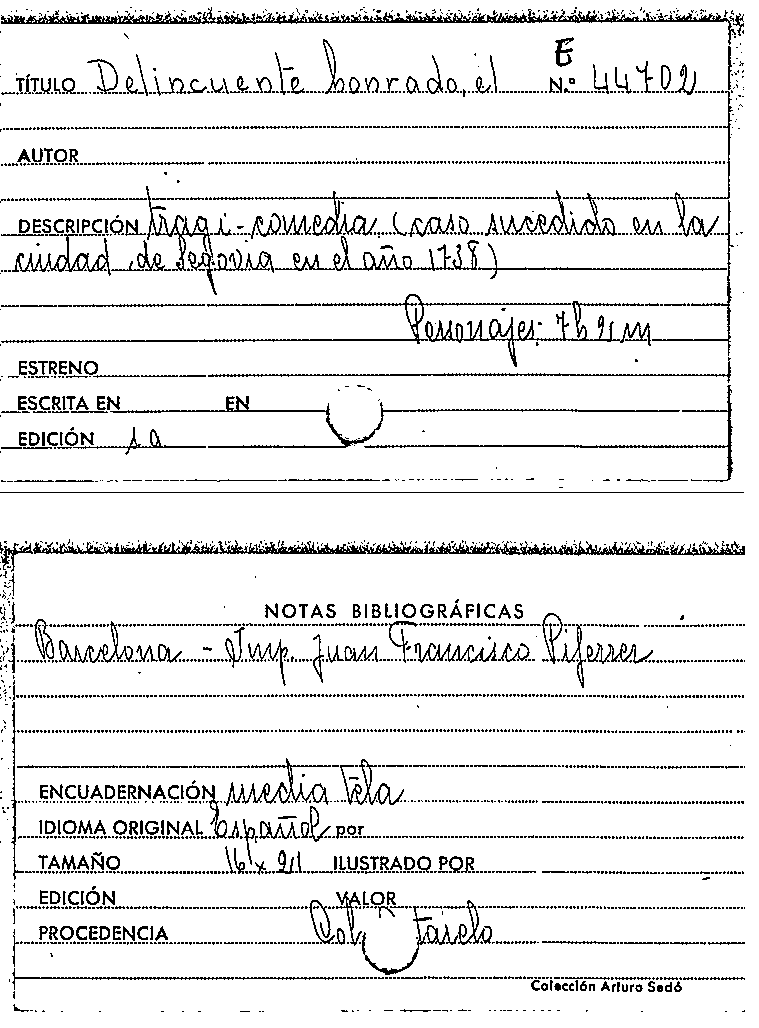 E
TÍTULO Delincuente honrado, el N.º 44702
AUTOR
DESCRIPCIÓN tragi-comedia (caso sucedido en la
ciudad de Segovia en el año 1738)
Personajes: 7h 2m
ESTRENO
ESCRITA EN EN
EDICIÓN s a
NOTAS BIBLIOGRÁFICAS
Barcelona - Imp. Juan Francisco Piferrer
ENCUADERNACIÓN media tela
IDIOMA ORIGINAL Español por
TAMAÑO 16 x 21 ILUSTRADO POR
EDICIÓN VALOR
PROCEDENCIA Col.
Colección Arturo Sedó